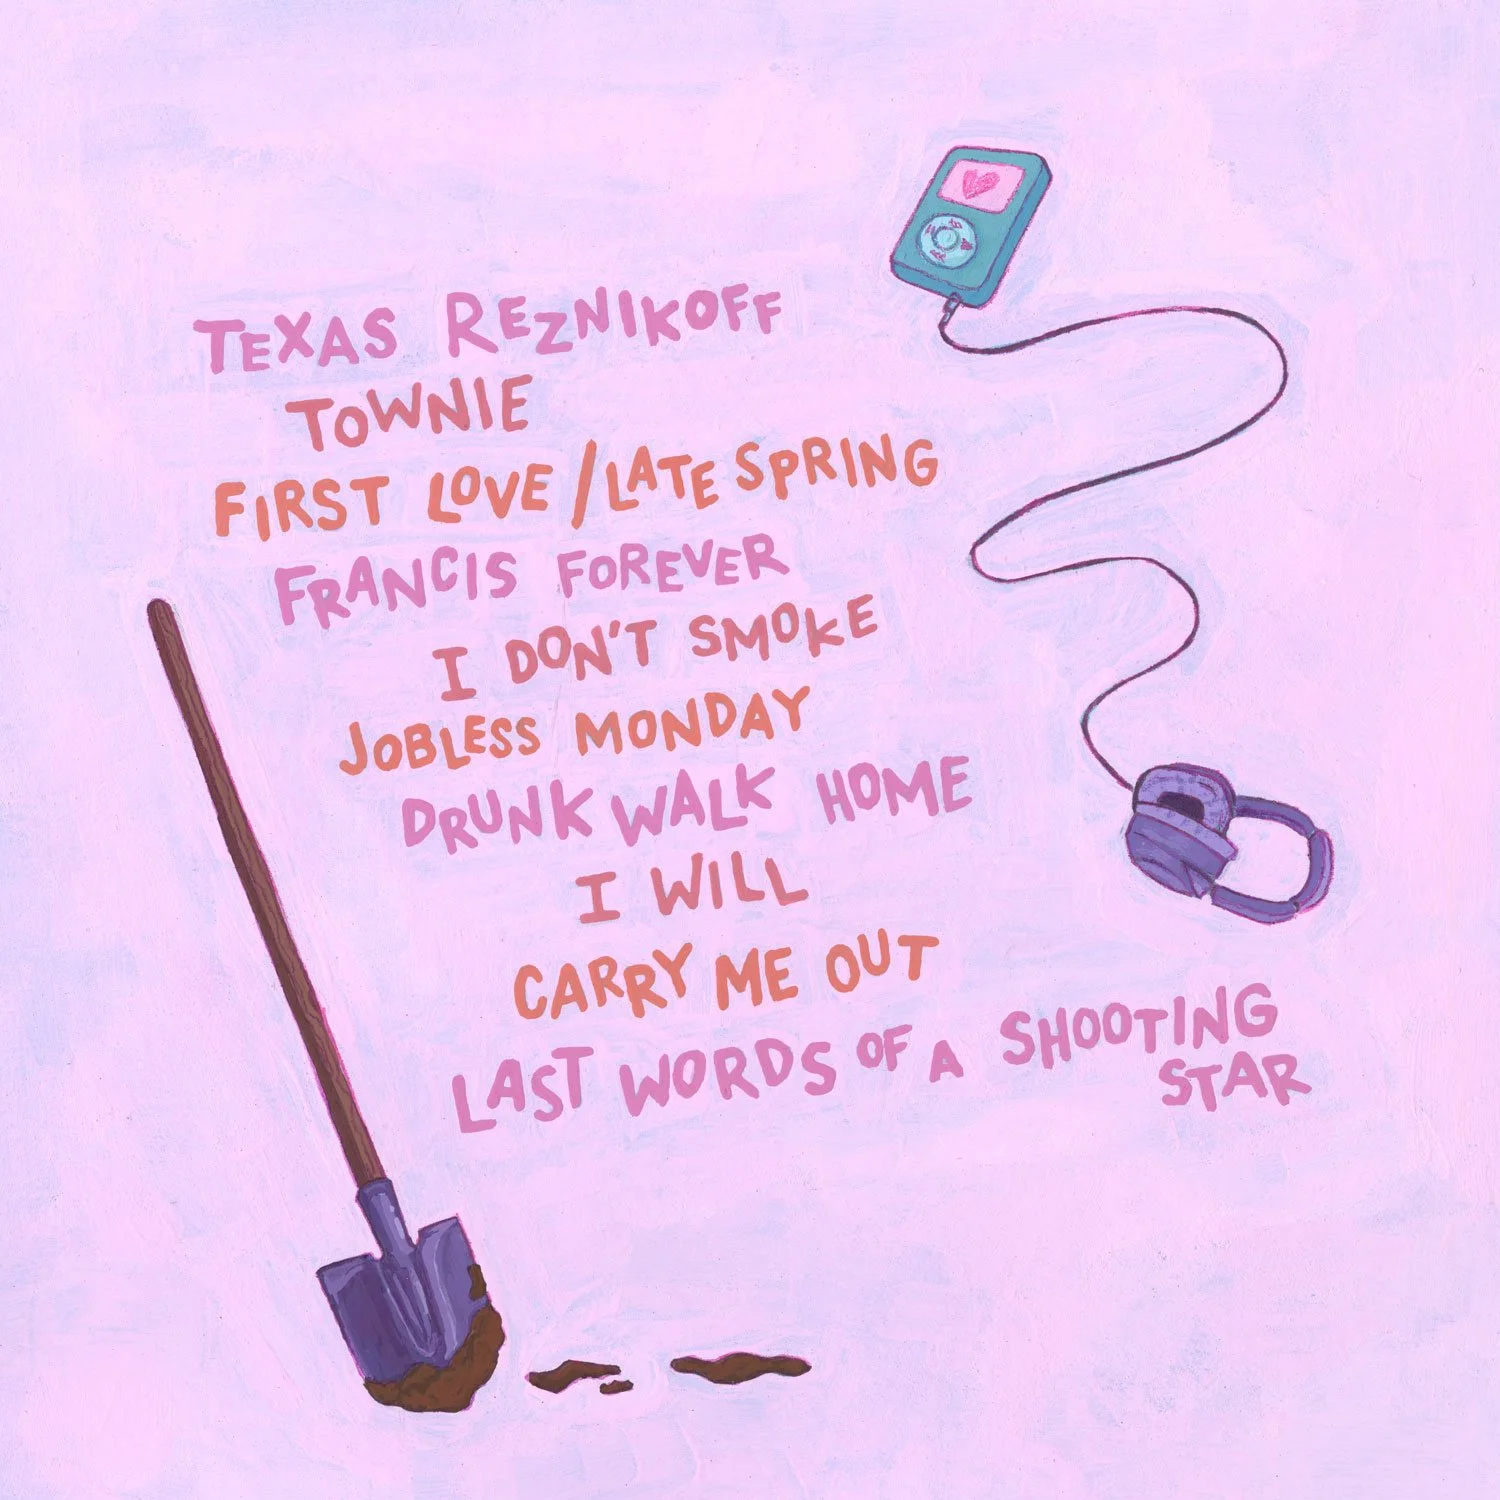 TEXAS REZNIKOFF
TOWNIE
FIRST LOVE / LATE SPRING
FRANCIS FOREVER
I DON'T SMOKE
JOBLESS MONDAY
DRUNK WALK HOME
I WILL
CARRY ME OUT
LAST WORDS OF A SHOOTING
STAR